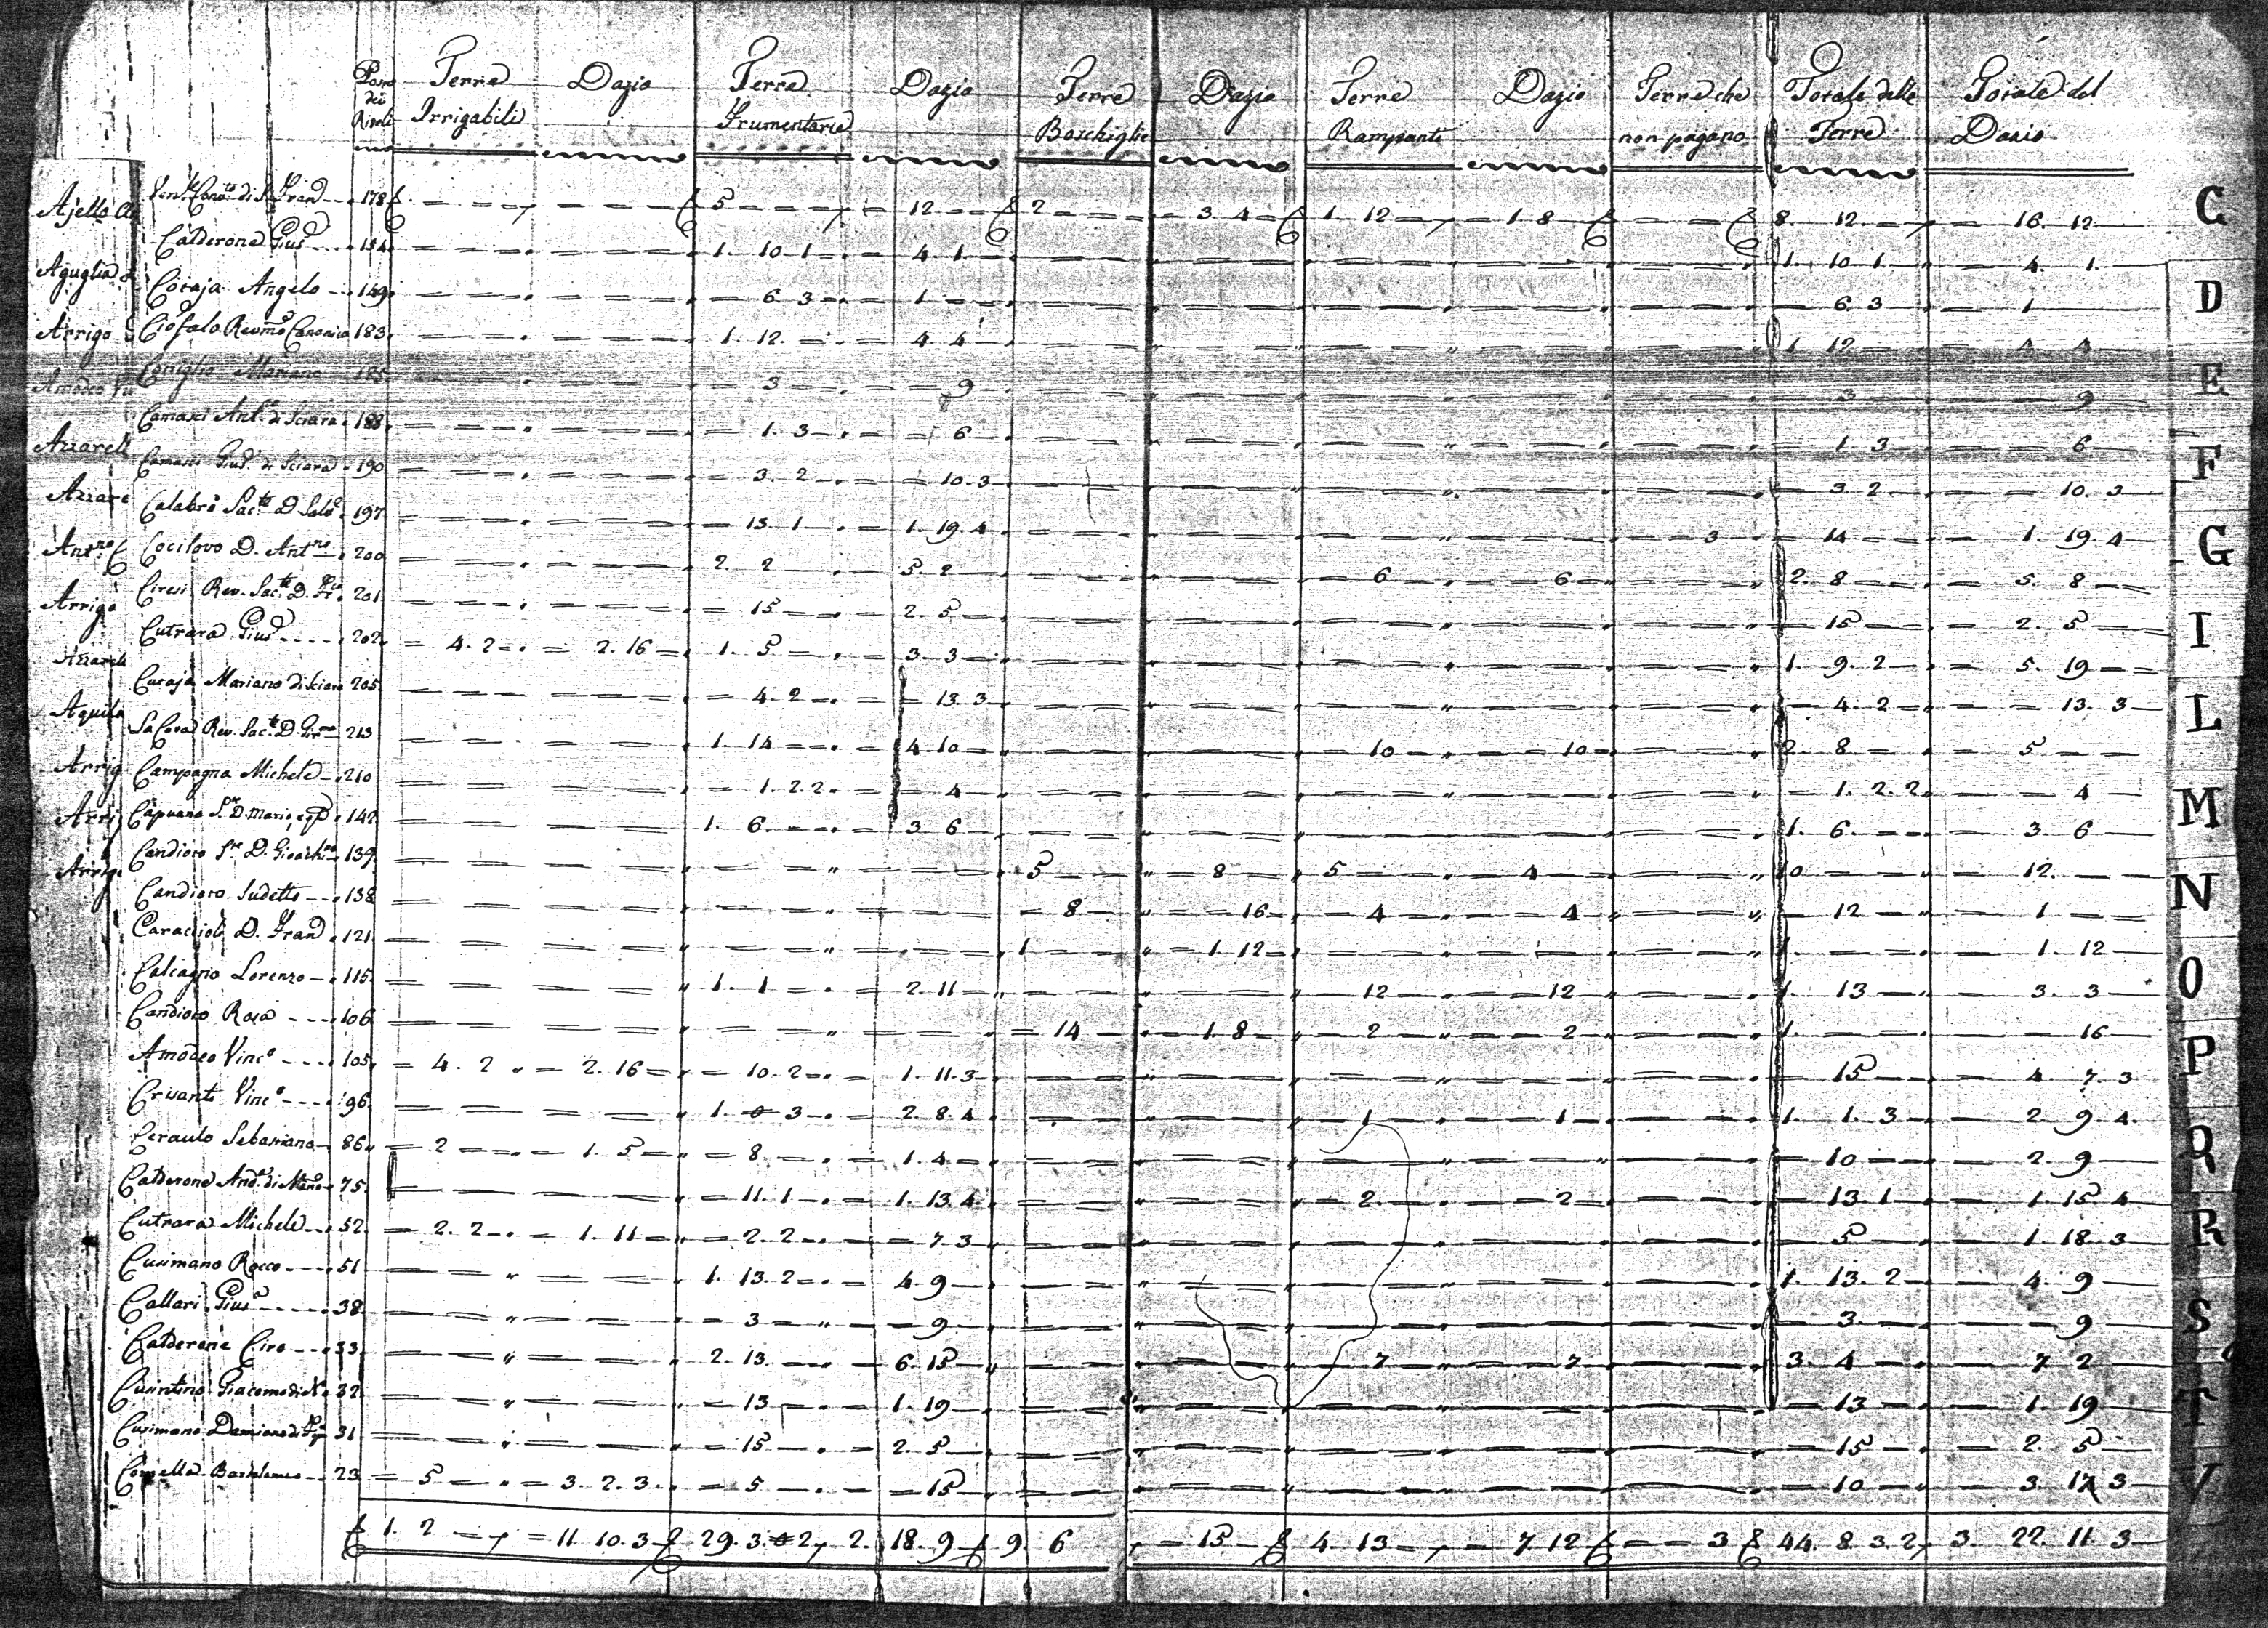 Terre Dazio Terre Dazio Terre Dazio Terre Dazio Terre che Totale delle Totale del
dei Riveli Irrigabili Frumentarie Boschiglie Rampanti non pagano Terre Dazio
Ajello 178 5 12 2 3 4 1 12 1 8 8 12 16 12
Calderone Gius 184 1 10 1 4 1 1 10 1 4 1
Aguglia
Coraja Angelo 149 6 3 1 6 3 1
Arrigo Ciofalo Revmo Canonico 183 1 12 4 4 1 12 4 4
Amodeo Coniglio Mariano 185 3 9 3 9
Camasci Ant.o di Sciara 188 1 3 6 1 3 6
Azzarell
Camasci Gius di Sciara 190 3 2 10 3 3 2 10 3
Azzare Calabrò Sac.te D. Salv 197 13 1 1 19 4 3 14 1 19 4
Ant.no Cocilovo D. Ant.no 200 2 2 5 2 6 6 2 8 5 8
Ciresi Rev. Sac.te D. 201 15 2 5 15 2 5
Arrigo
Cutrara Gius 202 4 2 2 16 1 5 3 3 1 9 2 5 19
Azzarell
Curaja Mariano di Sciara 205 4 2 13 3 4 2 13 3
Aquila
La Cova Rev. Sac.te D. 213 1 14 4 10 10 10 2 8 5
Arrig Campagna Michele 210 1 2 2 4 1 2 2 4
Arrig Capuana D. Mario 142 1 6 3 6 1 6 3 6
Candioro D. Gioachino 139 5 8 5 4 10 12
Arrigo
Candioro Sudetto 138 8 16 4 4 12 1
Caraccioli D. Fran 121 1 1 12 1 1 12
Calcagno Lorenzo 115 1 1 2 11 12 12 1 13 3 3
Candioro Rosa 106 14 1 8 2 2 1 16
Amodeo Vinc.o 105 4 2 2 16 10 2 1 11 3 15 4 7 3
Crisanti Vinc.o 96 1 3 2 8 4 1 1 1 1 3 2 9 4
Ceraulo Sebastiano 86 2 1 5 8 1 4 10 2 9
Calderone And. di 75 11 1 1 13 4 2 2 13 1 1 15 4
Cutrara Michele 52 2 2 1 11 2 2 7 3 5 1 18 3
Cusimano Rocco 51 1 13 2 4 9 1 13 2 4 9
Callari Gius 38 3 9 3 9
Calderone Ciro 33 2 13 6 15 7 7 3 4 7 2
Giacomo di 32 13 1 19 13 1 19
Cusimano Damiano di 31 15 2 5 15 2 5
Bartolomeo 23 5 3 2 3 5 15 10 3 17 3
1 2 11 10 3 29 3 2 2 18 9 9 6 15 4 13 7 12 3 44 8 3 2 3 22 11 3
C
D
E
F
G
I
L
M
N
O
P
Q
R
S
T
V